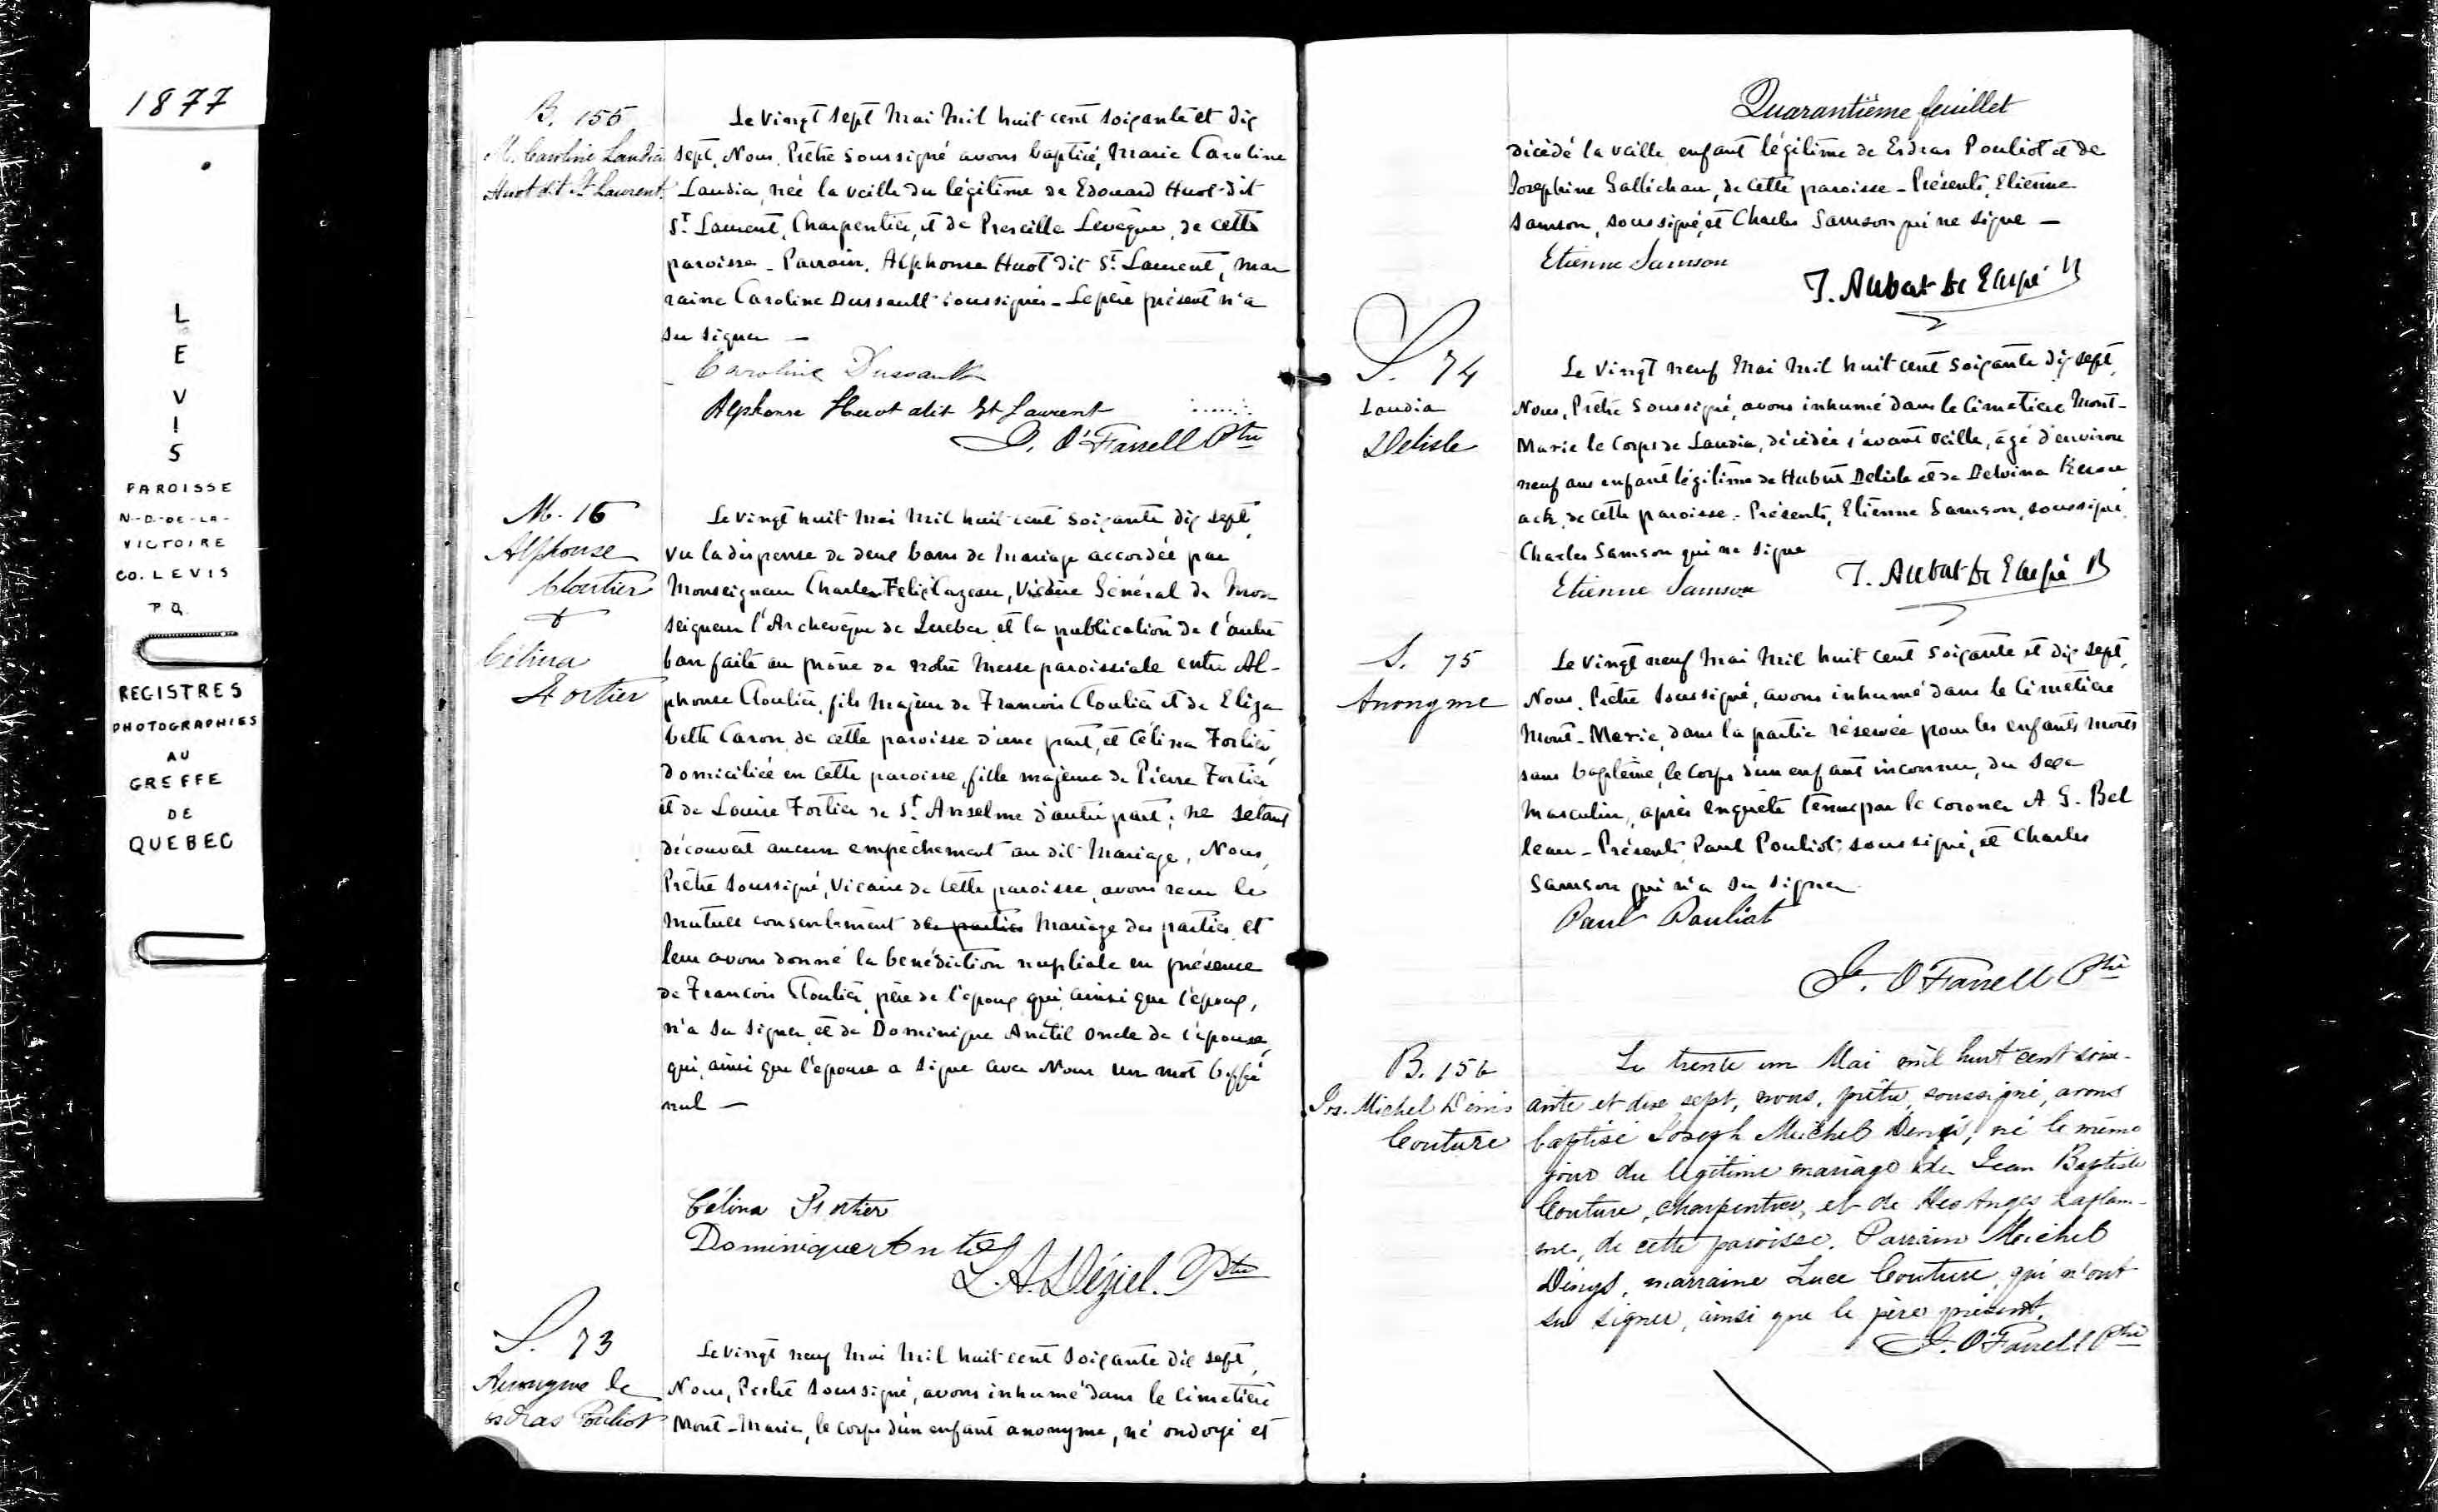 1877
L
E
V
I
S
PAROISSE
N-D-DE-LA-
VICTOIRE
CO. LEVIS
P Q
REGISTRES
PHOTOGRAPHIES
AU
GREFFE
DE
QUEBEC
B. 155
M. Caroline Laudia
Huot dit St Laurent
Le vingt sept Mai Mil huit cent soixante et dix
sept, Nous, Prêtre soussigné avons baptisé, Marie Caroline
Laudia, née la veille du légitime de Edouard Huot dit
St. Laurent, Charpentier, et de Prescille Leveque, de cette
paroisse - Parrain, Alphonse Huot dit St. Laurent, mar
raine Caroline Dussault soussignés - Le père présent n'a
su signer —
Caroline Dussault
Alphonse Huot dit St Laurent
J. O'Farrell Ptre
M. 16
Alphonse
Cloutier
&
Célina
Fortier
Le vingt huit Mai Mil huit cent soixante dix sept,
vu la dispense de deux bans de Mariage accordée par
Monseigneur Charles Félix Cazeau, Vicaire Général de Mon
seigneur l'Archevêque de Quebec et la publication de l'autre
ban faite au prône de notre Messe paroissiale entre Al-
phonse Cloutier, fils Majeur de Francois Cloutier et de Eliza
beth Caron, de cette paroisse d'une part, et Célina Fortier,
domiciliée en cette paroisse, fille majeure de Pierre Fortier
et de Louise Fortier de St. Anselme d'autre part; ne s'étant
découvert aucun empêchement au dit Mariage, Nous,
Prêtre soussigné, Vicaire de cette paroisse, avons recu le
mutuel consentement des parties Mariage des parties, et
leur avons donné la bénédiction nuptiale en présence
de Francois Cloutier, père de l'époux qui, ainsi que l'époux,
n'a su signer, et de Dominique Anctil oncle de l'épouse,
qui, ainsi que l'épouse a signé avec Nous un mot biffé
nul —
Célina Fortier
Dominique Anctil
L. A. Déziel. Ptre
S. 73
Anonyme de
Esdras Pouliot
Le vingt neuf Mai Mil huit cent soixante dix sept,
Nous, Prêtre soussigné, avons inhumé dans le Cimetière
Mont-Marie, le corps d'un enfant anonyme, né ondoyé et
Quarantième feuillet
décédé la veille enfant légitime de Esdras Pouliot et de
Josephine Gallichan, de cette paroisse - Présents, Etienne
Samson, soussigné, et Charles Samson qui ne signe —
Etienne Samson
S. 74
Laudia
Delisle
Le vingt neuf Mai Mil huit cent soixante dix sept,
Nous, Prêtre soussigné, avons inhumé dans le Cimetière Mont-
Marie le Corps de Laudia, décédée l'avant veille, âgé d'environ
neuf ans enfant légitime de Hubert Delisle et de Delvina
de cette paroisse - Présents, Etienne Samson, soussigné,
Charles Samson qui ne signe
Etienne Samson
S. 75
Anonyme
Le vingt neuf Mai Mil huit cent soixante et dix sept,
Nous, Prêtre soussigné, avons inhumé dans le Cimetière
Mont-Marie, dans la partie réservée pour les enfants morts
sans baptême, le corps d'un enfant inconnu, du sexe
Masculin, après enquête tenue par le coroner A G. Bel
leau - Présents, Paul Pouliot, soussigné, et Charles
Samson qui n'a su signer
Paul Pouliot
J. O'Farrell Ptre
B. 156
Jos. Michel Denis
Couture
Le trente un Mai mil huit cent soix-
ante et dix sept, nous, prêtre, soussigné, avons
baptisé Joseph Michel Denis, né le même
jour du légitime mariage de Jean Baptiste
Couture, charpentier, et de Des Anges Laflam-
me, de cette paroisse. Parrain Michel
Dings, marraine Luce Couture, qui n'ont
su signer, ainsi que le père présent.
J. O'Farrell Ptre